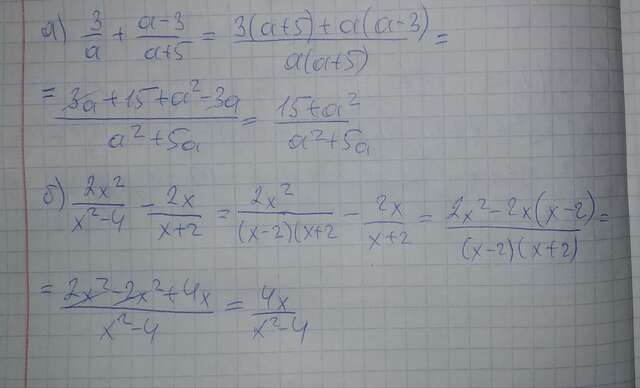 а) 3/a + (a-3)/(a+5) = (3(a+5)+a(a-3))/(a(a+5)) =
= (3a+15+a²-3a)/(a²+5a) = (15+a²)/(a²+5a)
б) 2x²/(x²-4) - 2x/(x+2) = 2x²/((x-2)(x+2) - 2x/(x+2) = (2x²-2x(x-2))/((x-2)(x+2)) =
= (2x²-2x²+4x)/(x²-4) = 4x/(x²-4)